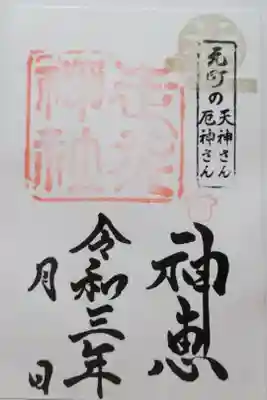 元町の
天神さん
厄神さん
走水
神社
神恵
令和三年
月 日